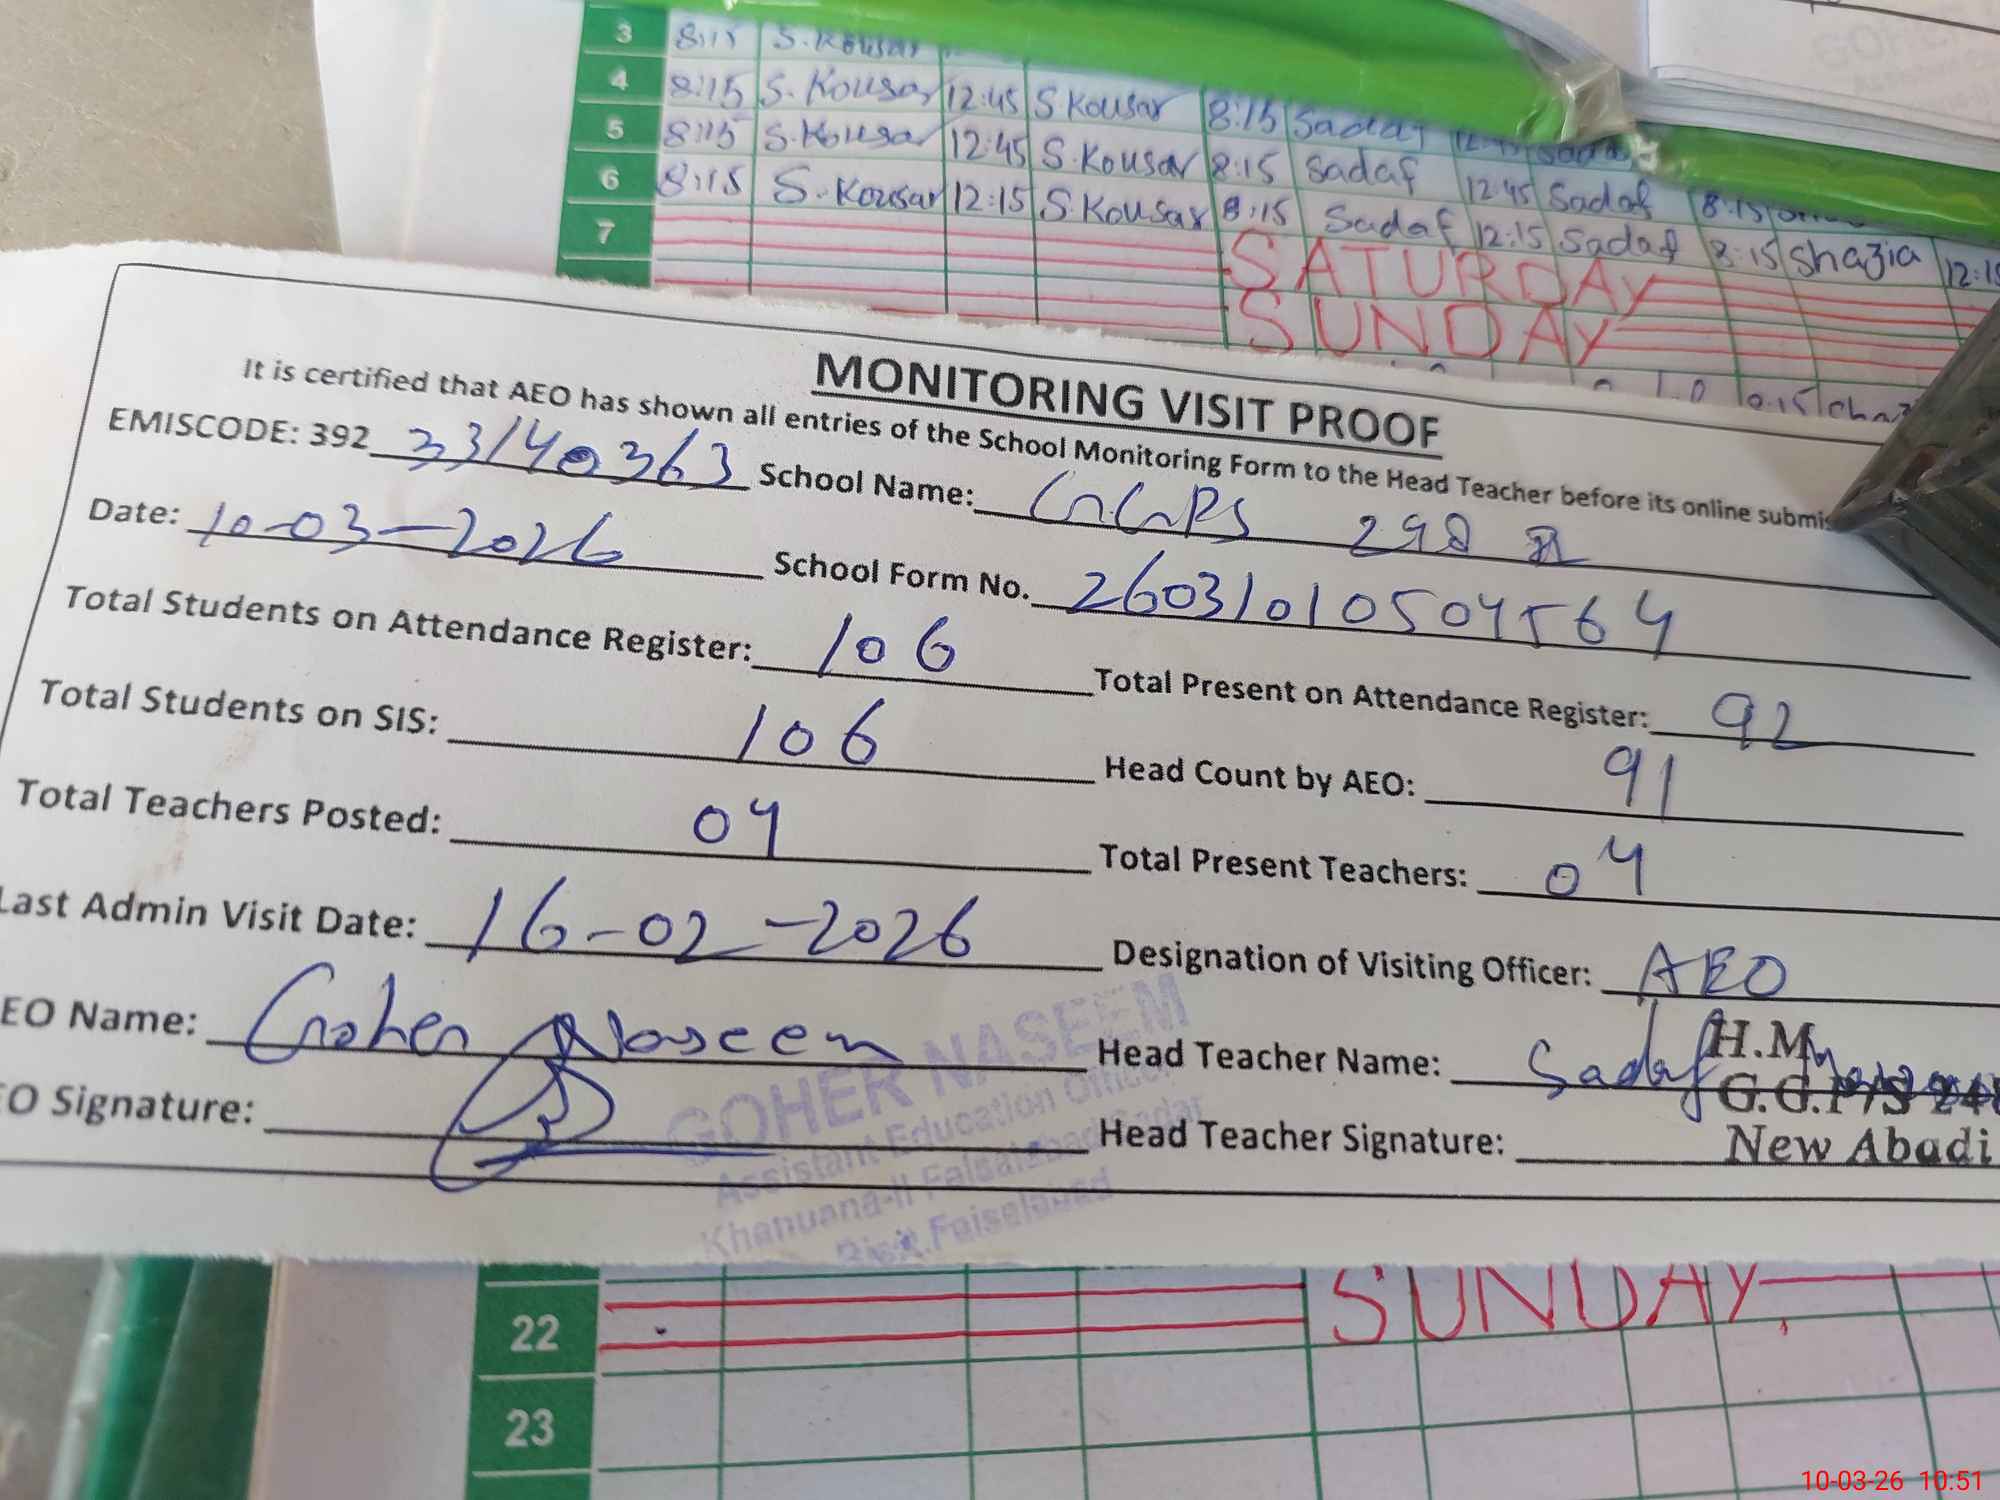 3 8:15 S. Kousar
4 8:15 S. Kousar 12:45 S Kousar 8:15 Sadaf 12:45 Sadaf
5 8:15 S. Kousar 12:45 S. Kousar 8:15 Sadaf 12:45 Sadaf 8:15
6 8:15 S. Kousar 12:15 S. Kousar 8:15 Sadaf 12:15 Sadaf 8:15 Shazia 12:15
7 SATURDAY
SUNDAY
MONITORING VISIT PROOF
It is certified that AEO has shown all entries of the School Monitoring Form to the Head Teacher before its online submis
EMISCODE: 392 33140363 School Name: GGPS 298
Date: 10-03-2026 School Form No. 26031010504564
Total Students on Attendance Register: 106 Total Present on Attendance Register: 92
Total Students on SIS: 106 Head Count by AEO: 91
Total Teachers Posted: 04 Total Present Teachers: 04
Last Admin Visit Date: 16-02-2026 Designation of Visiting Officer: AEO
EO Name: Goher Naseem Head Teacher Name: Sadaf
EO Signature: Head Teacher Signature:
GOHER NASEEM
Assistant Education Officer
Khanuana-II Faisalabad Sadar
Distt. Faiselabad
H.M
G.G.P/S 24
New Abadi
SUNDAY
22
23
10-03-26 10:51